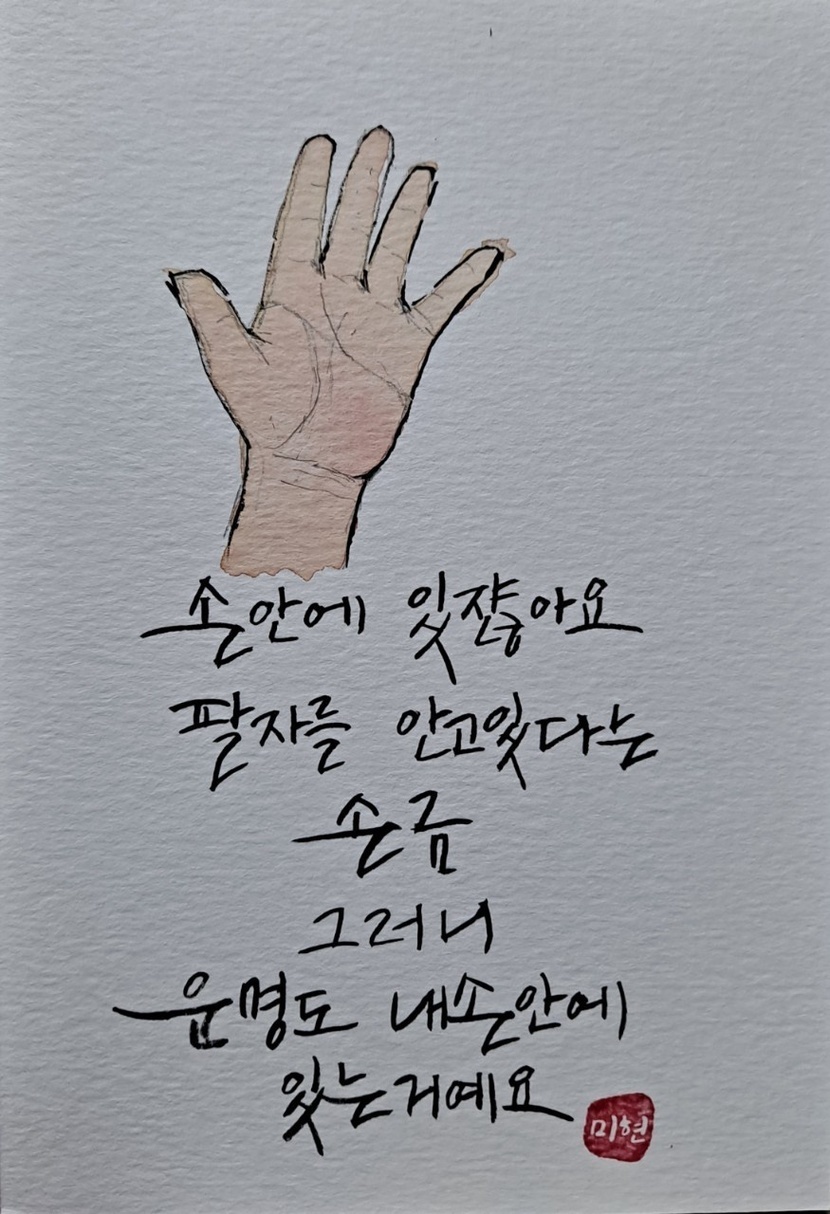 손안에 있잖아요
팔자를 안고있다는
손금
그러니
운명도 내손안에
있는거예요
미현